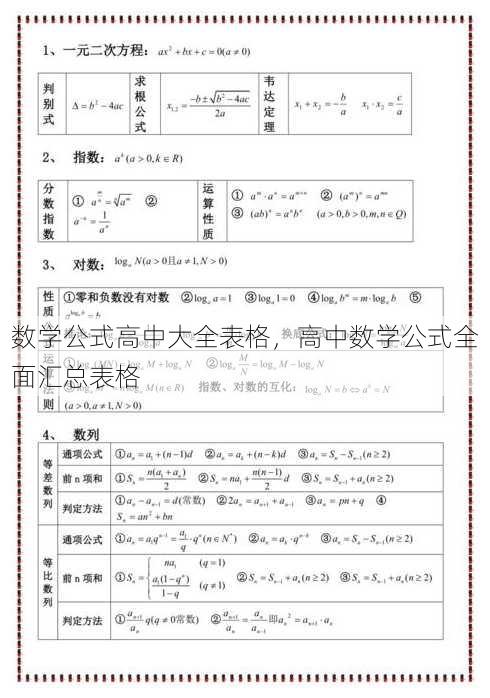 1、一元二次方程：ax² + bx + c = 0(a ≠ 0)
判别式 Δ = b² − 4ac 求根公式 x₁,₂ = (−b ± √(b² − 4ac)) / 2a 韦达定理 x₁ + x₂ = −b/a x₁ · x₂ = c/a
2、 指数：aᵏ(a > 0, k ∈ R)
分数指数 ① a^(m/n) = ⁿ√(aᵐ) ②
a⁻ⁿ = 1/aⁿ
运算性质 ① aᵐ · aⁿ = aᵐ⁺ⁿ ② (aᵐ)ⁿ = aᵐⁿ
③ (ab)ⁿ = aⁿbⁿ (a > 0, b > 0, m, n ∈ Q)
3、 对数：logₐ N(a > 0且a ≠ 1, N > 0)
性质 ①零和负数没有对数 ②logₐ a = 1 ③logₐ 1 = 0 ④logₐ bᵐ = m·logₐ b ⑤
数学公式高中大全表格，高中数学公式全
面汇总表格
换底公式
logₐ M/N = logₐ M − logₐ N
(n ∈ R) 指数、对数的互化：logₐ N = b ⇔ aᵇ = N
则 (a > 0, a ≠ 1, N > 0)
4、 数列
等差数列
通项公式 ①aₙ = a₁ + (n−1)d ②aₙ = aₖ + (n−k)d ③aₙ = Sₙ − Sₙ₋₁(n ≥ 2)
前 n 项和 ①Sₙ = n(a₁ + aₙ)/2 ②Sₙ = na₁ + n(n−1)/2 d ③Sₙ = Sₙ₋₁ + aₙ(n ≥ 2)
判定方法 ①aₙ − aₙ₋₁ = d(常数) ②2aₙ = aₙ₊₁ + aₙ₋₁ ③aₙ = pn + q ④
Sₙ = an² + bn
等比数列
通项公式 ①aₙ = a₁qⁿ⁻¹ = a₁/q · qⁿ(n ∈ N*) ②aₙ = aₖ · qⁿ⁻ᵏ ③aₙ = Sₙ − Sₙ₋₁(n ≥ 2)
前 n 项和 ①Sₙ = { na₁ (q = 1)
a₁(1 − qⁿ)/(1 − q) (q ≠ 1) ②Sₙ = Sₙ₋₁ + aₙ(n ≥ 2) ③Sₙ = Sₙ₋₁ + aₙ(n ≥ 2)
判定方法 ①aₙ₊₁/aₙ q(q ≠ 0常数) ②aₙ₊₁/aₙ = aₙ/aₙ₋₁ 即aₙ² = aₙ₊₁ · aₙ